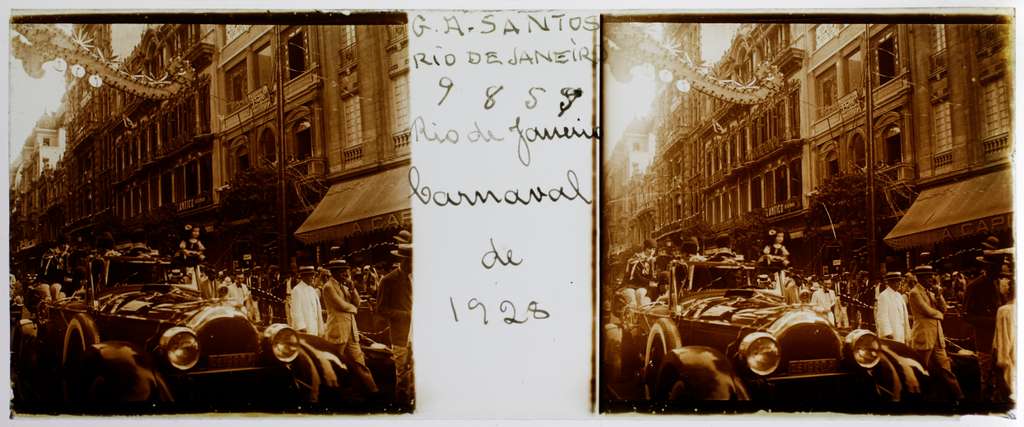 G. A. SANTOS
RIO DE JANEIRO
9859
Rio de Janeiro
Carnaval
de
1928
A CAP